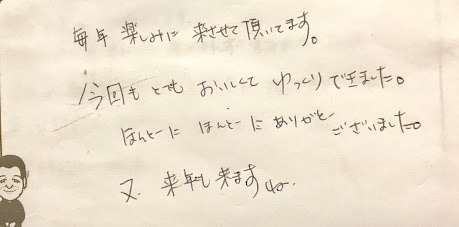 毎年 楽しみに 来させて頂いてます。
今回も とても おいしくて ゆっくりできました。
ほんとーに ほんとーに ありがとーございました。
又、来年も来ますね。